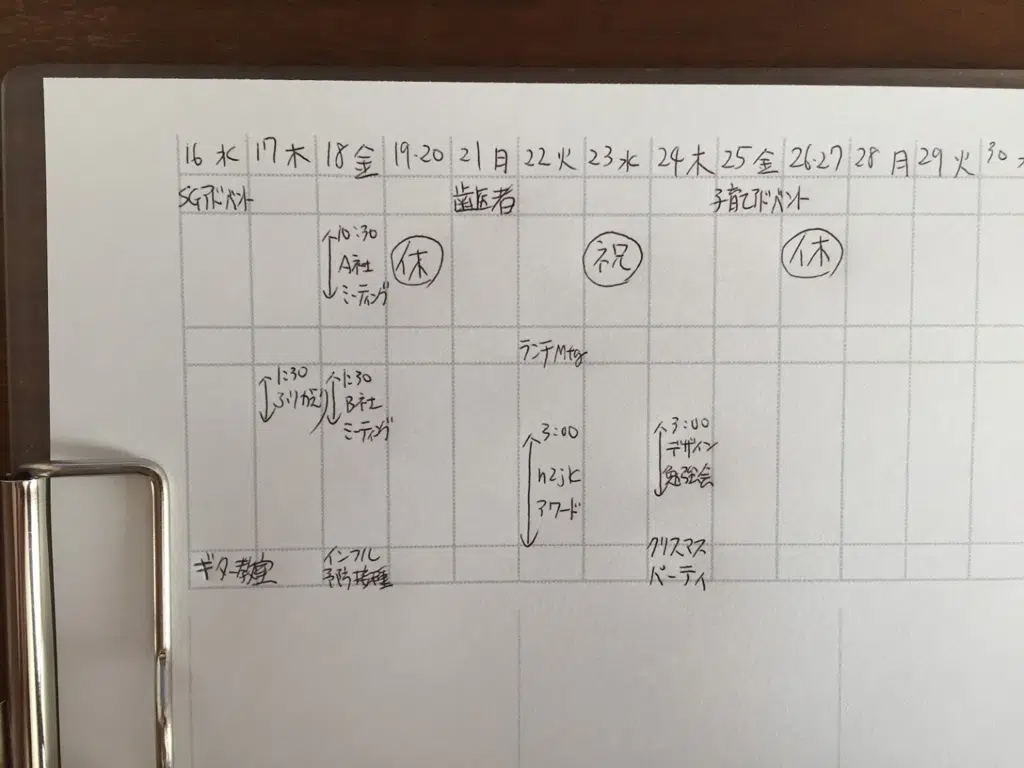 16 水 17 木 18 金 19・20 21 日 22 火 23 水 24 木 25 金 26・27 28 月 29 火 30
SGアドベント 歯医者 子育てアドベント
10:30
A社
ミーティング
休
祝
休
ランチMtg
1:30
ふりかえり
1:30
B社
ミーティング
3:00
n2jk
アワード
3:00
デザイン
勉強会
ギター教室
インフル
予防接種
クリスマス
パーティ